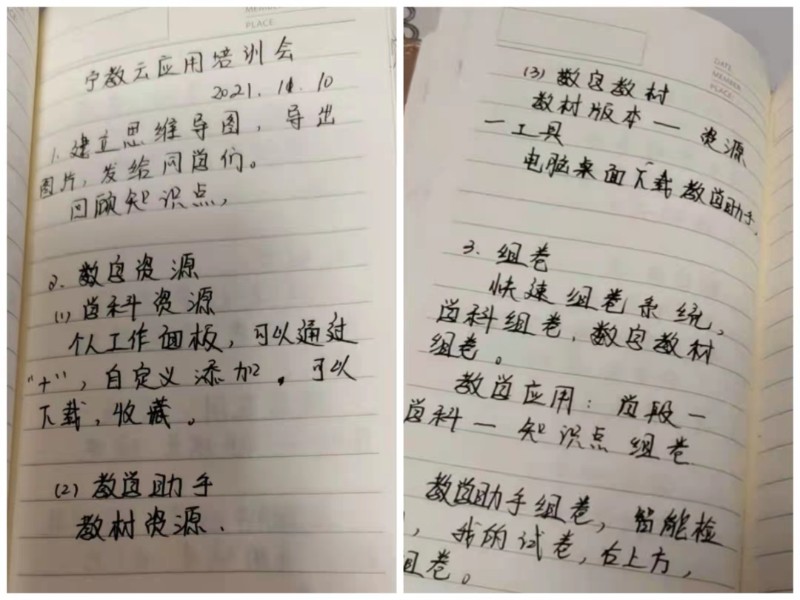 MEMBER
PLACE:
宁教云应用培训会
2021.11.10
1.建立思维导图，导出
图片，发给同学们。
回顾知识点，
2.数字资源
(1)学科资源
个人工作面板，可以通过
“+”，自定义添加。可以
下载，收藏。
(2)教学助手
教材资源.
DATE
MEMBER
PLACE:
(3)数字教材
教材版本一资源
一工具
电脑桌面下载教学助手。
3.组卷
快速组卷系统，
学科组卷，数字教材
组卷。
教学应用：学段一
学科一知识点组卷
教学助手组卷，智能检
，我的试卷，右上方，
组卷。